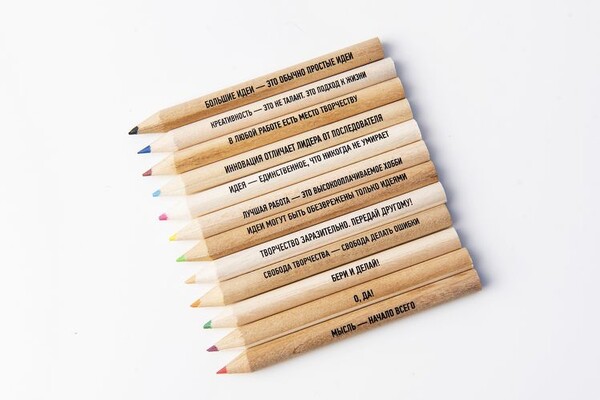 БОЛЬШИЕ ИДЕИ — ЭТО ОБЫЧНО ПРОСТЫЕ ИДЕИ
КРЕАТИВНОСТЬ — ЭТО НЕ ТАЛАНТ, ЭТО ПОДХОД К ЖИЗНИ
В ЛЮБОЙ РАБОТЕ ЕСТЬ МЕСТО ТВОРЧЕСТВУ
ИННОВАЦИЯ ОТЛИЧАЕТ ЛИДЕРА ОТ ПОСЛЕДОВАТЕЛЯ
ИДЕЯ — ЕДИНСТВЕННОЕ, ЧТО НИКОГДА НЕ УМИРАЕТ
ЛУЧШАЯ РАБОТА — ЭТО ВЫСОКООПЛАЧИВАЕМОЕ ХОББИ
ИДЕИ МОГУТ БЫТЬ ОБЕЗВРЕЖЕНЫ ТОЛЬКО ИДЕЯМИ
ТВОРЧЕСТВО ЗАРАЗИТЕЛЬНО, ПЕРЕДАЙ ДРУГОМУ!
СВОБОДА ТВОРЧЕСТВА — СВОБОДА ДЕЛАТЬ ОШИБКИ
БЕРИ И ДЕЛАЙ!
О, ДА!
МЫСЛЬ — НАЧАЛО ВСЕГО